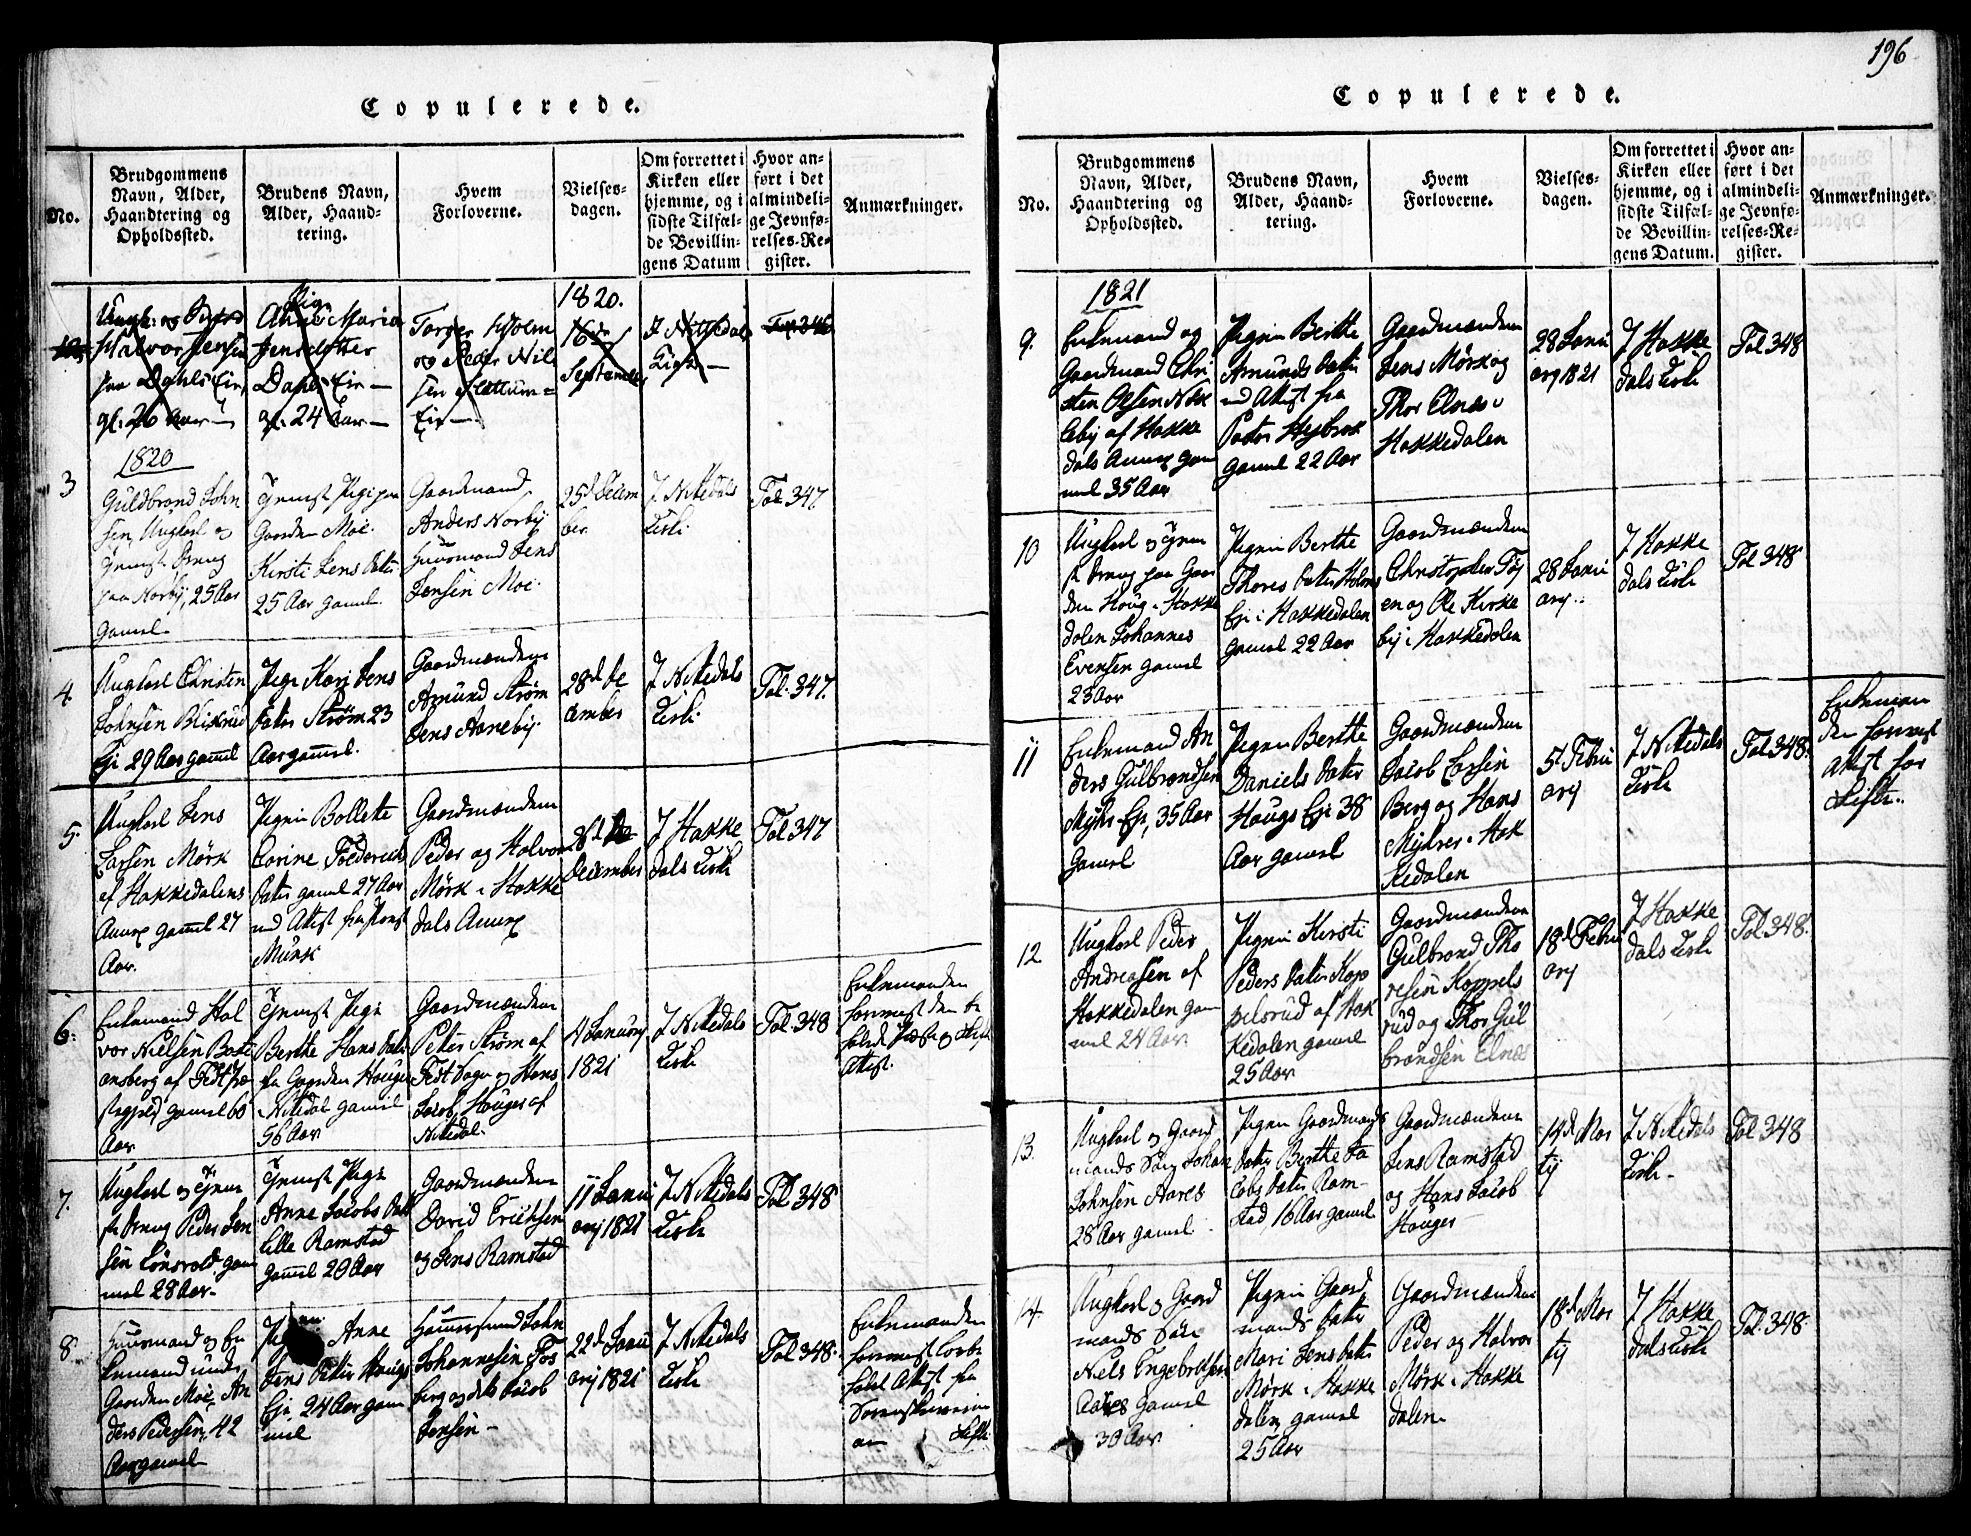 196
Copulerede.
No.
Brudgommens
Navn, Alder,
Haandtering og
Opholdssted.
Brudens Navn,
Alder, Haand-
tering.
Hvem
Forloverne.
Vielses-
dagen.
Om forrettet i
Kirken eller
hjemme, og i
sidste Tilfæl-
de Bevillin-
gens Datum
Hvor an-
ført i det
almindeli-
ge Jevnfø-
relses-Re-
gister.
Anmærkninger.
Halvor Jensen
paa Dahls Eie,
gl. 26 Aar
Pige
Anne Maria
Jensdatter
Dahls Eie
gl. 24 Aar
Torger Holm
og Peder Nil
sen
Eie
1820.
16de
September
I Nittedals
Kirke
Fol 346
3
1820
Guldbrand John
sen, Ungkarl og
Dreng
paa Norby, 25 Aar
gamel
Pige paa
Gaarden Moe
Kirsti Jens Datter
25 Aar gamel
Gaardmand
Anders Norby
Huusmand Jens
Jensen Moe.
25d Decem
ber
I Nittedals
Kirke
Fol 347
4
Ungkarl Christen
Johnsen
Eje 29 Aar gamel
Pige Kari Jens
Datter Strøm 23
Aar gamel.
Gaardmændene
Amund Strøm
Jens Aaneby.
28d De
cember
I Nittedals
Kirke
Fol. 347
5.
Ungkarl Jens
Larsen Mørk
af Hakkedalens
Annex gamel 27
Aar.
Pigen Bollette
Corine Frederichs
Datter gamel 27 Aar
med Attest fra
Munk
Gaardmændene
Peder og Halvor
Mørk i Hakke
dals Annex
28d De
December
I Hakke
dals Kirke
Fol 347
6.
Enkemand Hal
vor Nielsen
af Fedt Præ
stegjeld gamel 60
Aar
Pige
Berthe Hans Datter
fra Gaarden Hauger
i Nittedal gamel
56 Aar
Gaardmændene
Peter Strøm af
Fedt Sogn og Hans
Jacob Hauger af
Nittedal.
4 January
1821
I Nittedals
Kirke
Fol 348
Enkemanden
foreviist den be
falede og Skifte
Attest.
7.
Ungkarl og Tjene
ste Dreng Peder Jen
sen gam
mel 28 Aar.
Pige
Anne Jacobs Datter
Lille Ramstad
gamel 20 Aar
Gaardmændene
David Erichsen
og Jens Ramstad
11 Janu
ary 1821
I Nittedals
Kirke
Fol 348
8.
Huusmand og En
kemand under
Gaarden Moe, An
ders Pedersen, 42
Aar gamel
Anne
Jens Datter Haugs
Eje 24 Aar gam
mel
John
Johannesen Fos
berg og Jacob
Jensen
22d Janu
ary 1821
I Nittedals
Kirke
Fol 348
Enkemanden
foreviist
falede Attest fra
Sorenskriveren
om Skifte
Copulerede.
No.
Brudgommens
Navn, Alder,
Haandtering og
Opholdssted.
Brudens Navn,
Alder, Haand-
tering.
Hvem
Forloverne.
Vielses-
dagen.
Om forrettet i
Kirken eller
hjemme, og i
sidste Tilfæl-
de Bevillin-
gens Datum.
Hvor an-
ført i det
almindeli-
ge Jevnfø-
relses-Re-
gister.
Anmærkninger.
9.
1821
Enkemand og
Gaardmand Chri
sten Olsen
af Hakke
dals Annex gam
mel 35 Aar
Pigen Berthe
Amunds Datter
med Attest fra
gamel 22 Aar
Gaardmændene
Jens Mørk og
Thor Elnæs i
Hakkedalen
28 Janu
ary 1821
I Hakke
dals Kirke
Fol 348
10
Ungkarl og Tjene
ste Dreng paa Gaar
den Houg i Hakke
dalen Johannes
Evensen gamel
23 Aar
Pigen Berthe
Thores Datter
Eje i Hakkedalen
gamel 22 Aar
Gaardmændene
Christopher Tøy
en og Ole Kirke
by i Hakkedalen
28 Janu
ary
I Hakke
dals Kirke
Fol 348
11
Enkemand An
ders Gulbrandsen
Eje, 35 Aar
gamel
Pigen Berthe
Daniels Datter
Haugs Eje 38
Aar gamel
Gaardmændene
Jacob Larsen
Berg og Hans
Mykrer i Hak
kedalen
5t Febru
ary
I Nittedals
Kirke
Fol 348.
Enkeman
den foreviist
Attest for
Skifte.
12
Ungkarl Peder
Andreasen af
Hakkedalen gam
mel 24 Aar
Pigen Kirsti
Peders Datter Kop
pelsrud af Hak
kedalen gamel
25 Aar
Gaardmændene
Gulbrand Tho
resen Koppels
rud og Thor Gul
brandsen Elnæs
18d Febru
ary
I Hakke
dals Kirke
Fol 348.
13.
Ungkarl og Gaard
mands Søn Johan
Johnsen Aarés
28 Aar gamel
Pigen Gaardmands
Datter Berthe Ja
cobs Datter Ram-
stad 16 Aar gamel
Gaardmændene
Jens Ramstad
og Hans Jacob
Hauger
14d Mar
tij
I Nittedals
Kirke
Fol 348
14.
Ungkarl og Gaard
mands Søn
Niels Engebretsen
Aares gamel
30 Aar
Pigen Gaard
mands Datter
Mari Jens Datter
Mørk i Hakke
dalen gamel
25 Aar
Gaardmændene
Peder og Halvor
Mørk i Hakke
dalen
18d Mar
tij
I Hakke
dals Kirke
Fol. 348